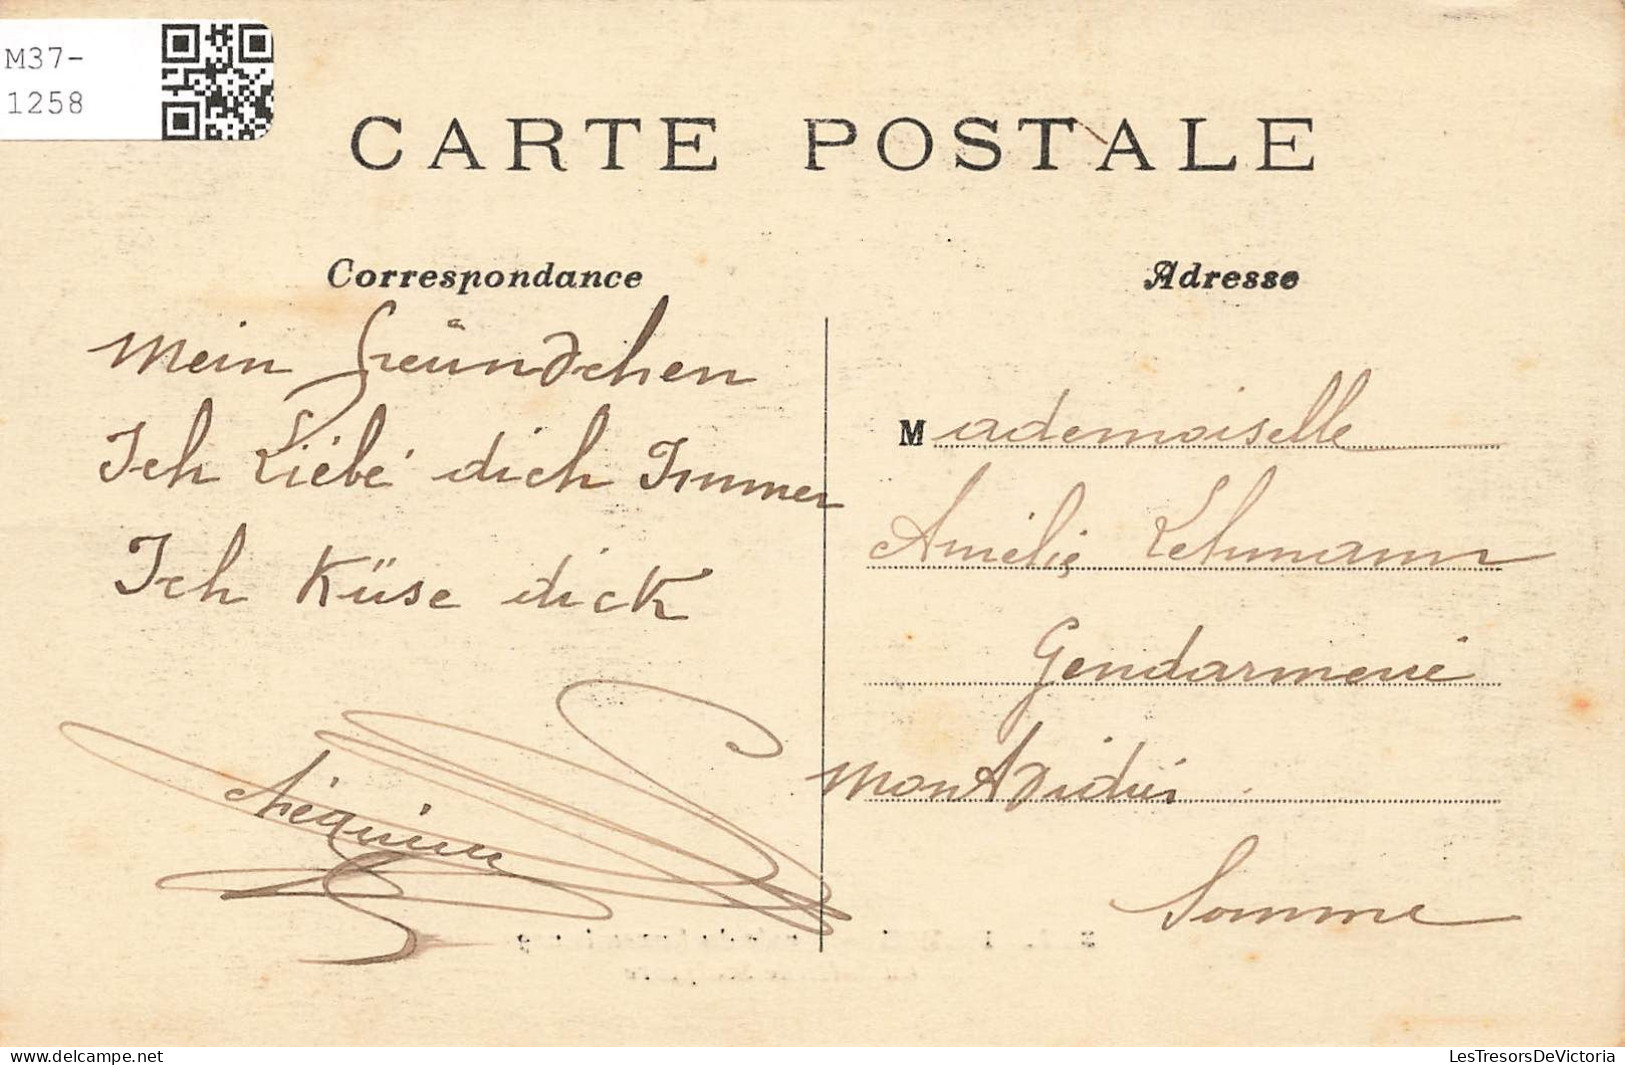 M37-
1258
CARTE POSTALE
Correspondance
Mein Freündchen
Ich Liebé dich Immer
Ich Küse dick
Adresse
Mademoiselle
Amélie Lehmann
Gendarmerie
Montdidier
Somme
delcampe.net
LesTresorsDeVictoria